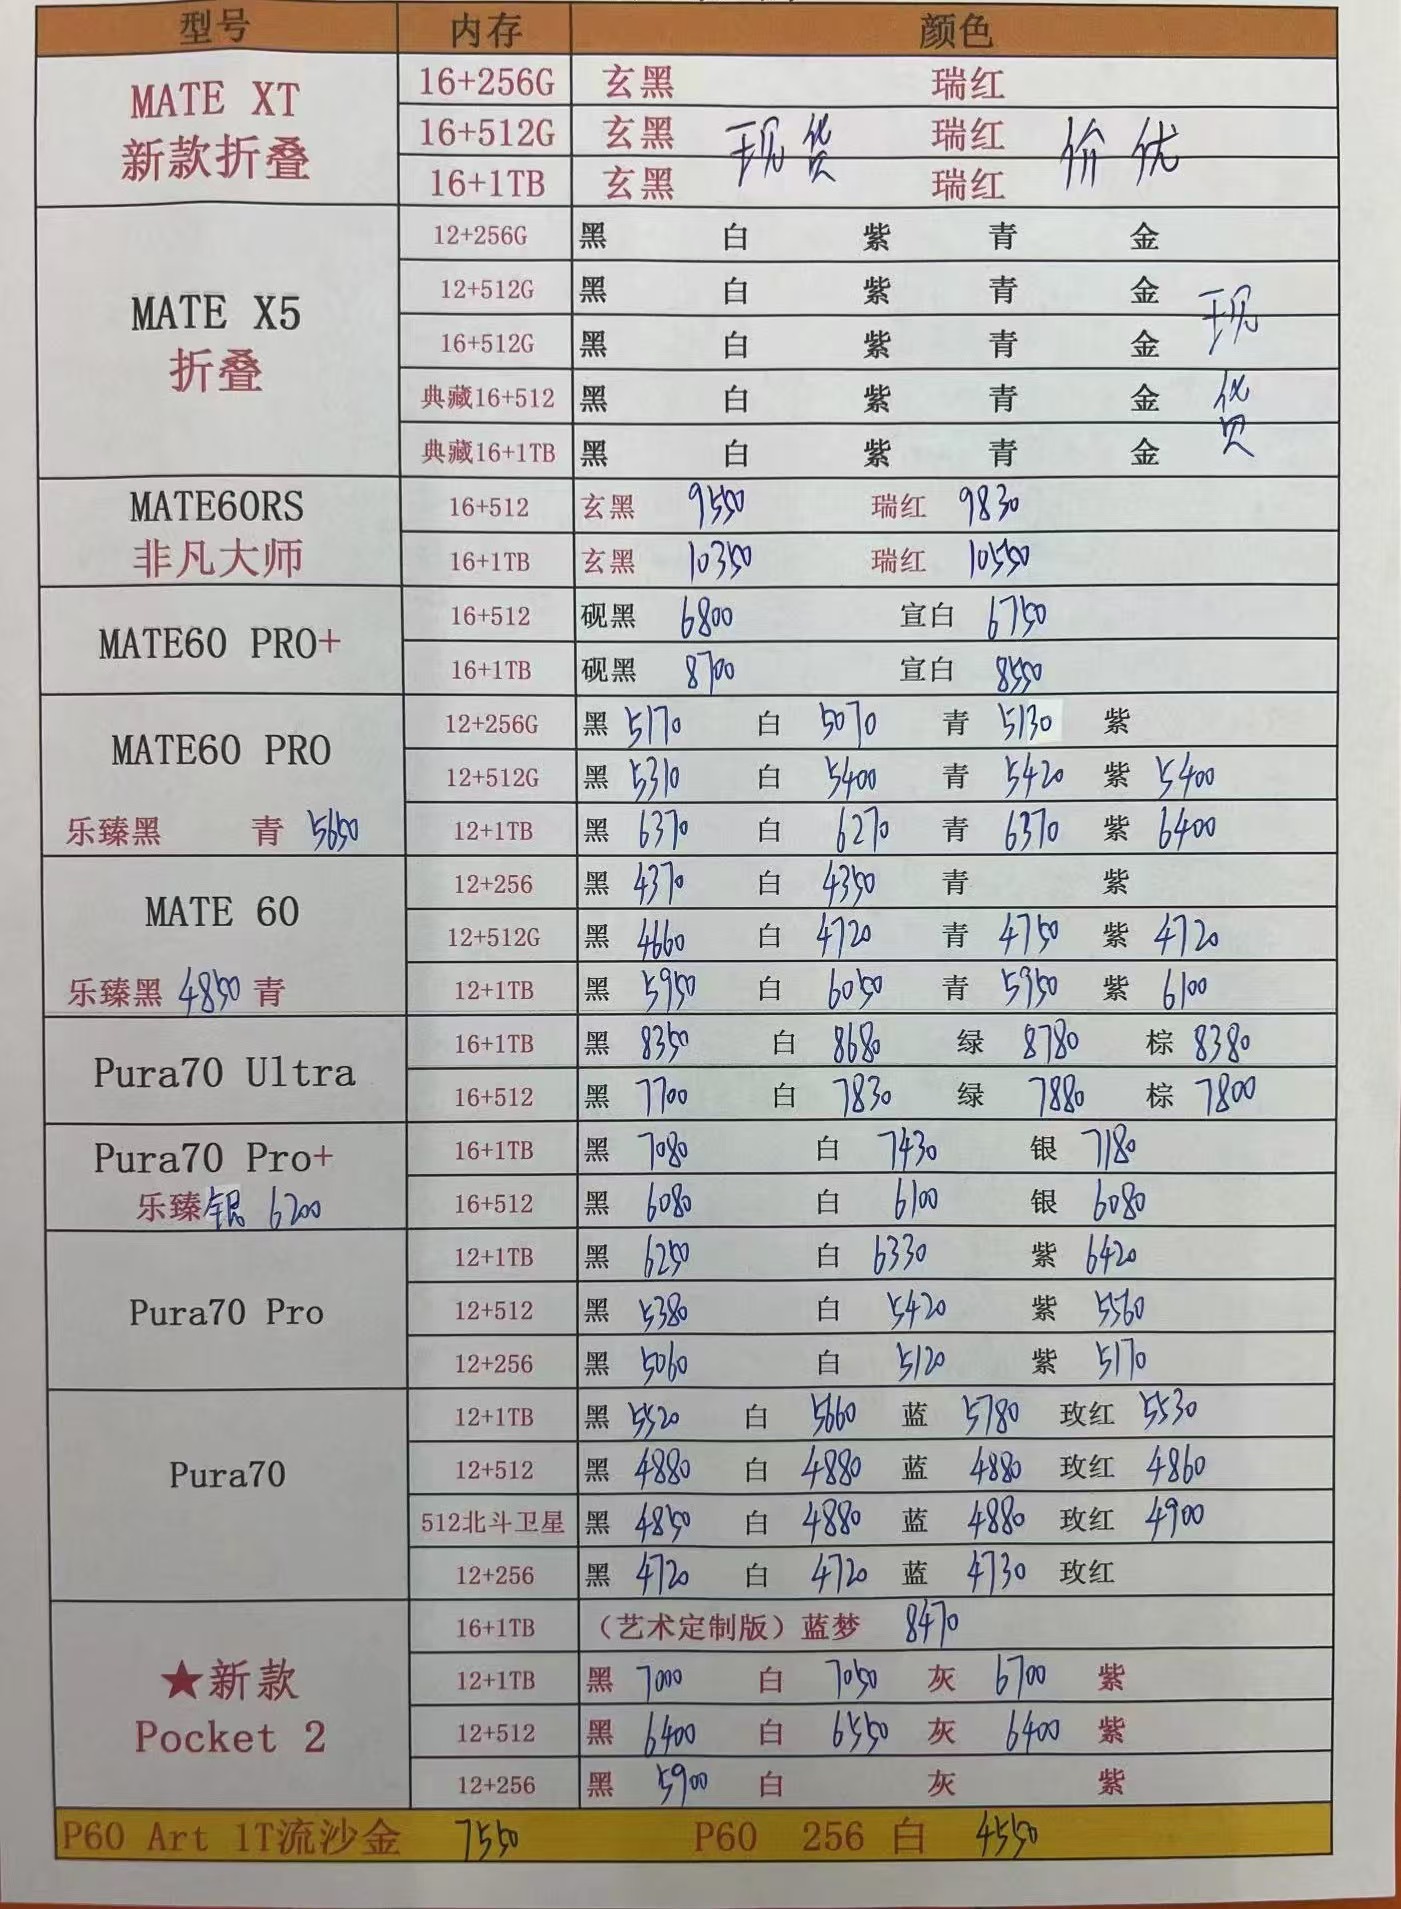 型号 内存 颜色
MATE XT 16+256G 玄黑 瑞红
新款折叠 16+512G 玄黑 现货 瑞红 价优
16+1TB 玄黑 瑞红
12+256G 黑 白 紫 青 金
MATE X5 12+512G 黑 白 紫 青 金 现
折叠 16+512G 黑 白 紫 青 金
典藏16+512 黑 白 紫 青 金 货
典藏16+1TB 黑 白 紫 青 金
MATE60RS 16+512 玄黑 9550 瑞红 9830
非凡大师 16+1TB 玄黑 10350 瑞红 10550
MATE60 PRO+ 16+512 砚黑 6800 宣白 6750
16+1TB 砚黑 8700 宣白 8550
MATE60 PRO 12+256G 黑 5170 白 5070 青 5130 紫
12+512G 黑 5310 白 5400 青 5420 紫 5400
乐臻黑 青 5650 12+1TB 黑 6370 白 6270 青 6370 紫 6400
MATE 60 12+256 黑 4370 白 4350 青 紫
12+512G 黑 4660 白 4720 青 4750 紫 4720
乐臻黑 4850 青 12+1TB 黑 5950 白 6050 青 5950 紫 6100
Pura70 Ultra 16+1TB 黑 8350 白 8680 绿 8780 棕 8380
16+512 黑 7700 白 7830 绿 7880 棕 7800
Pura70 Pro+ 16+1TB 黑 7080 白 7430 银 7180
乐臻银 6200 16+512 黑 6080 白 6100 银 6080
12+1TB 黑 6250 白 6330 紫 6420
Pura70 Pro 12+512 黑 5380 白 5420 紫 5560
12+256 黑 5060 白 5120 紫 5170
12+1TB 黑 5520 白 5660 蓝 5780 玫红 5530
Pura70 12+512 黑 4880 白 4880 蓝 4880 玫红 4860
512北斗卫星 黑 4850 白 4880 蓝 4880 玫红 4900
12+256 黑 4720 白 4720 蓝 4730 玫红
16+1TB （艺术定制版）蓝梦 8470
★新款 12+1TB 黑 7000 白 7050 灰 6700 紫
Pocket 2 12+512 黑 6400 白 6550 灰 6400 紫
12+256 黑 5900 白 灰 紫
P60 Art 1T流沙金 7550 P60 256 白 4550